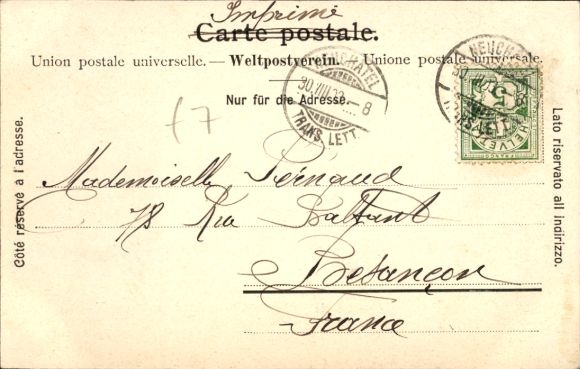 Imprimé
Carte postale.
Union postale universelle. — Weltpostverein. — Unione postale universale.
Nur für die Adresse.
Côté réservé à l'adresse.
Lato riservato all indirizzo.
NEUCHATEL
30.VIII.02 – 8
TRANS. LETT.
NEUCHA
8
LETT
5
HELVE
f 7
Mademoiselle Pernaud
78 Rue Battant
Besançon
France